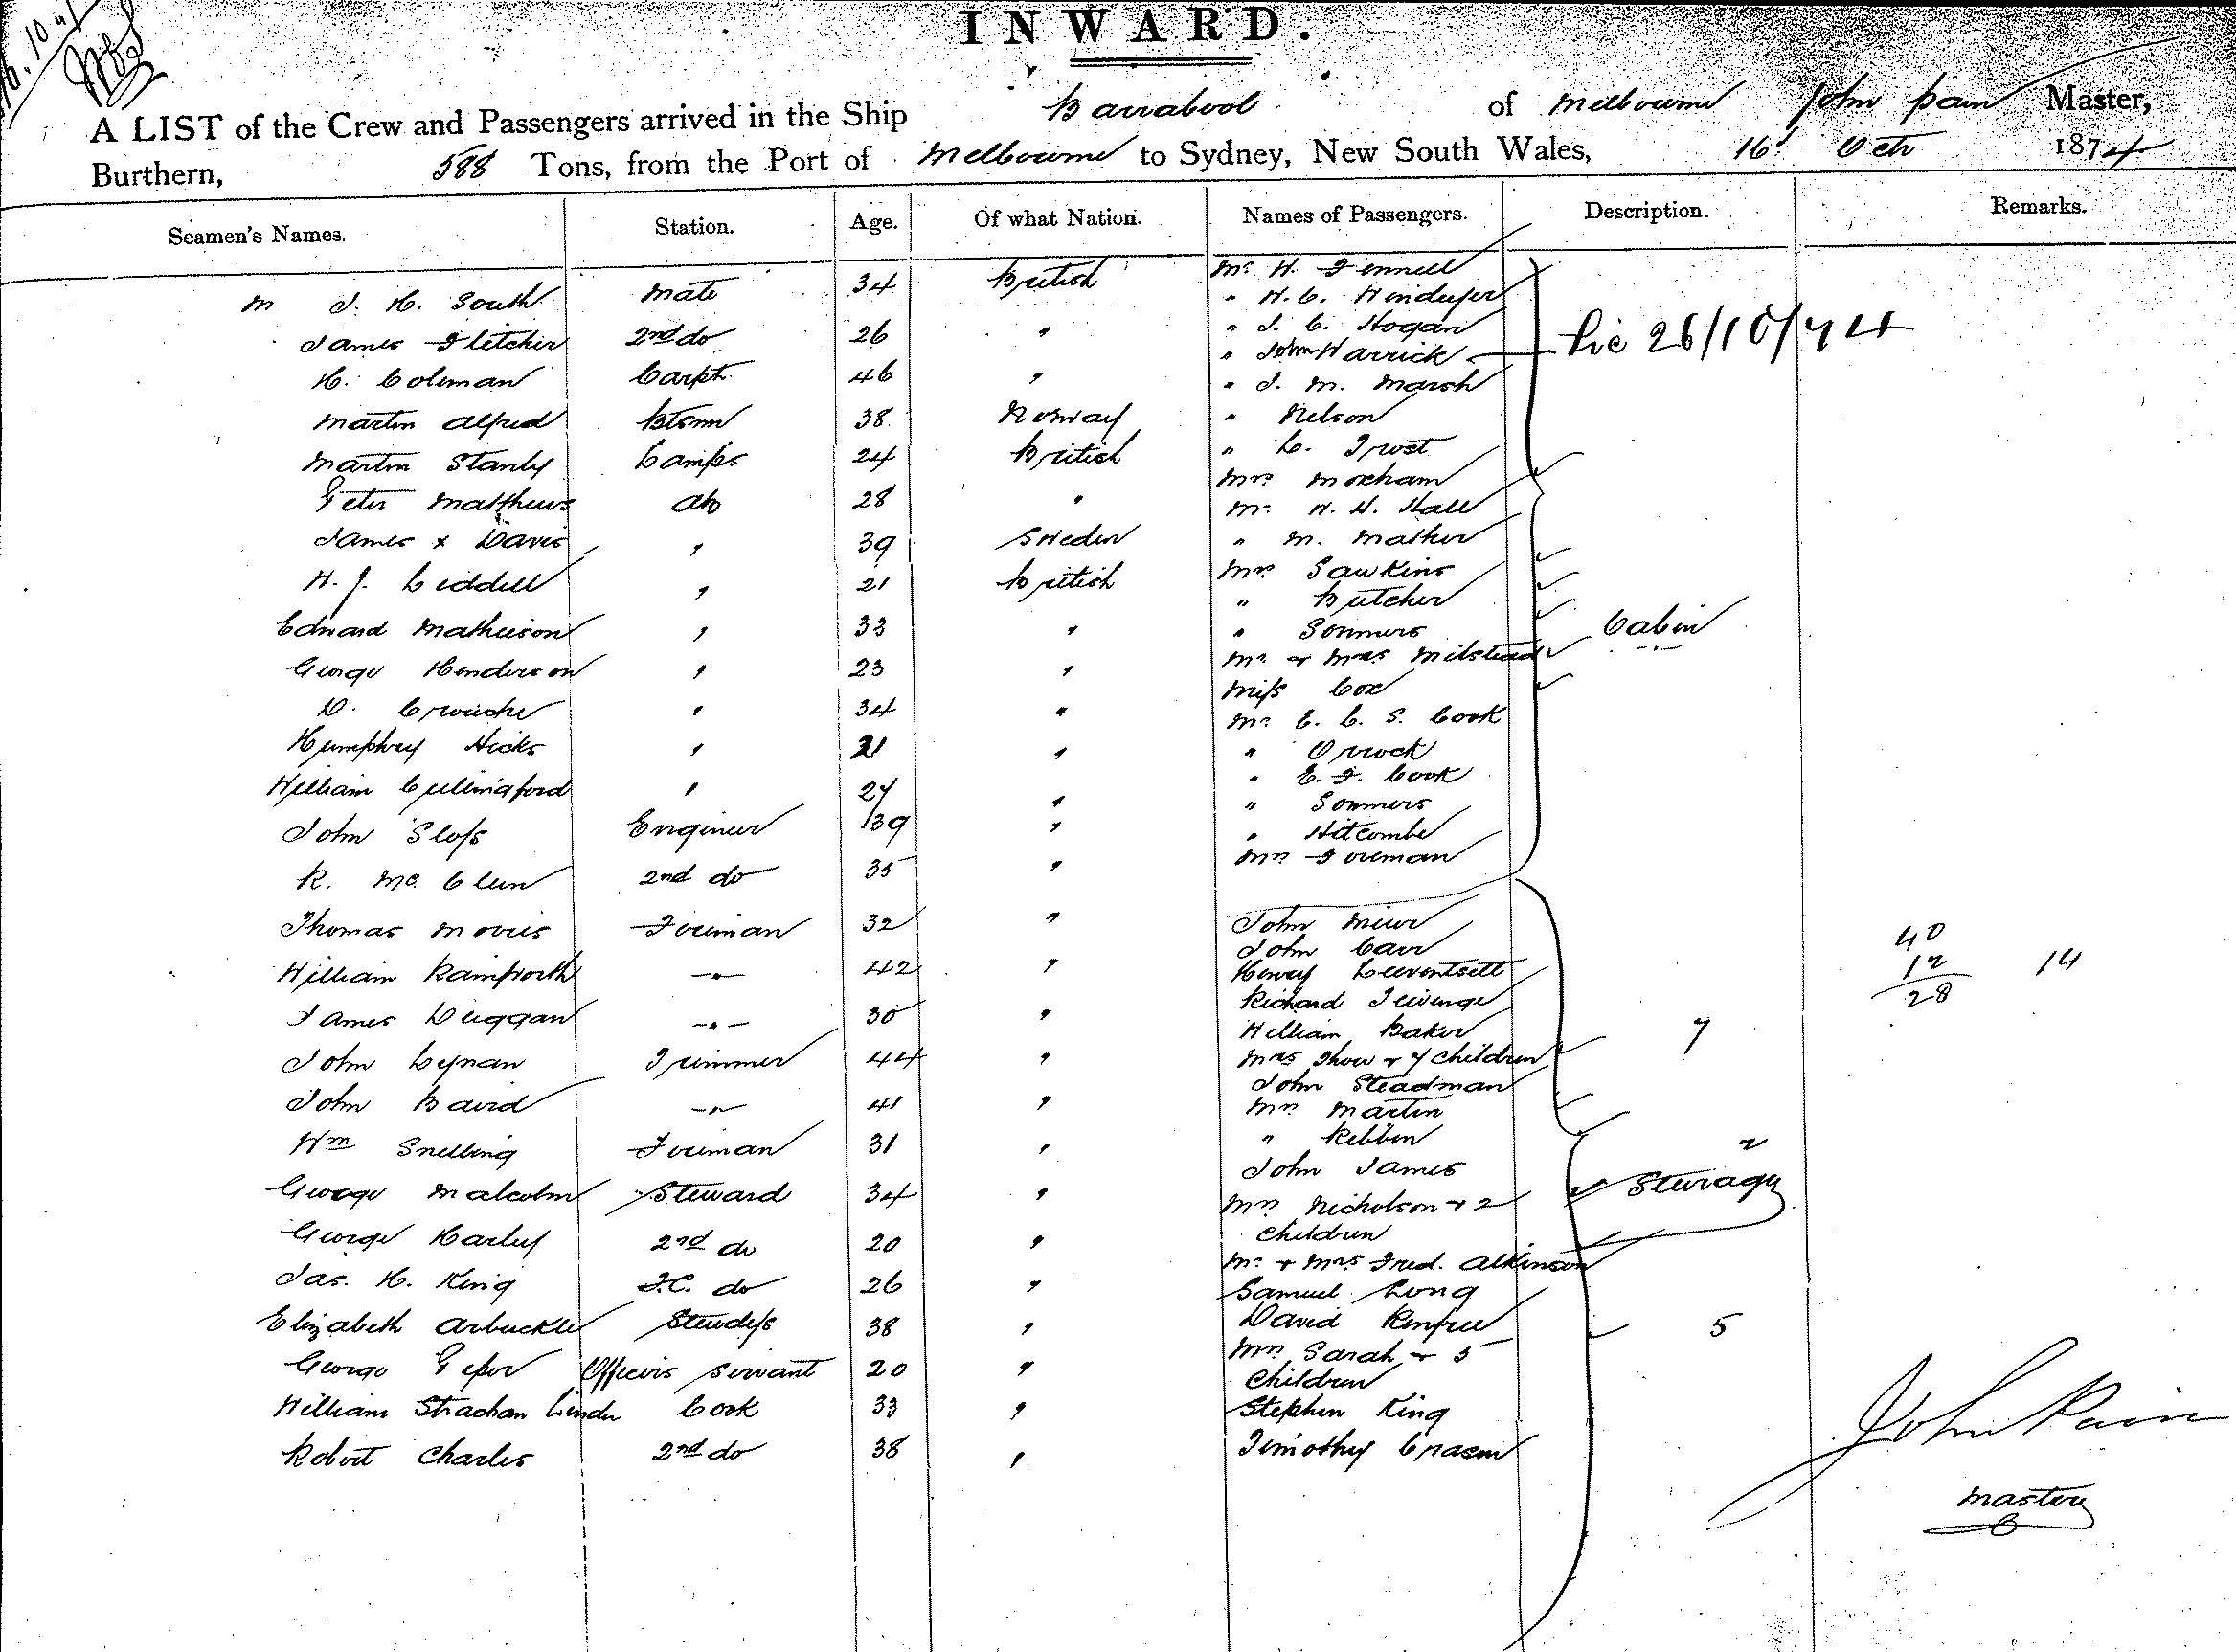 INWARD.
A LIST of the Crew and Passengers arrived in the Ship Barrabool of Melbourne John Pain Master,
Burthern, 588 Tons, from the Port of Melbourne to Sydney, New South Wales, 16 Octr 1874
Seamen's Names. Station. Age. Of what Nation. Names of Passengers. Description. Remarks.
J. H. South Mate 34 British
James Fletcher 2nd do 26 "
H. Coleman Carptr 46 "
Martin Alfred Btsn 38 Norway
Martin Stanly Lamps 24 British
Peter Matthews AB 28 "
James x Davis " 39 Sweden
W. J. Liddell " 21 British
Edward Mathieson " 33 "
George Henderson " 23 "
D. " 34 "
Humphrey Hicks " 21 "
William Cullingford " 27 "
John Sloss Engineer 39 "
R. Mc. Clun 2nd do 35 "
Thomas Morris Fireman 32 "
William Rainforth -"- 42 "
James Duggan -"- 30 "
John Lynan Trimmer 44 "
John Baird -"- 41 "
Wm Snelling Fireman 31 "
George Malcolm Steward 34 "
George Harley 2nd do 20 "
Jas. H. King F.C. do 26 "
Elizabeth Arbuckle Stewdss 38 "
George Officers Servant 20 "
William Strachan Cook 33 "
Robert Charles 2nd do 38 "
Mr. H. Fennell
" W. C. Windeyer
" J. C. Hogan
" John Warrick
" J. M. Marsh
" Nelson
" C. Frost
Mrs Moxham
Mr. W. H. Hall
" M. Mather
Mrs Sawkins
" Butcher
" Sommers
Mr. & Mrs Milstead
Miss Cox
Mr. C. C. S. Cook
" Orrock
" E. F. Cook
" Sommers
" Witcombe
Mrs Foreman
26/10/74
Cabin
John Muir
John Carr
Henry
Richard
William Baker
Mrs Thow & 7 Children 7
John Steadman
Mrs Martin
" Ribbin
John James
Mrs Nicholson & 2 2
Children
Mr. & Mrs Fred. Atkinson
Samuel Long
David Renfree
Mrs Sarah & 5 5
Children
Stephen King
Timothy
Steerage
40
12 14
28
John Pain
Master